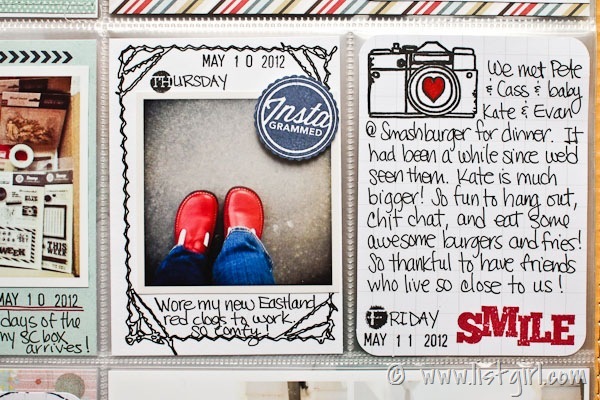 MAY 10 2012
days of the
my SC box
arrives!
MAY 10 2012
THURSDAY
Insta
GRAMMED
Wore my new Eastland
red clogs to work.
So comfy!
We met Pete
& Cass & baby
Kate & Evan
@ Smashburger for dinner. It
had been a while since we'd
seen them. Kate is much
bigger! So fun to hang out,
chit chat, and eat some
awesome burgers and fries!
So thankful to have friends
who live so close to us!
FRIDAY
MAY 11 2012
SMILE
© www.listgirl.com